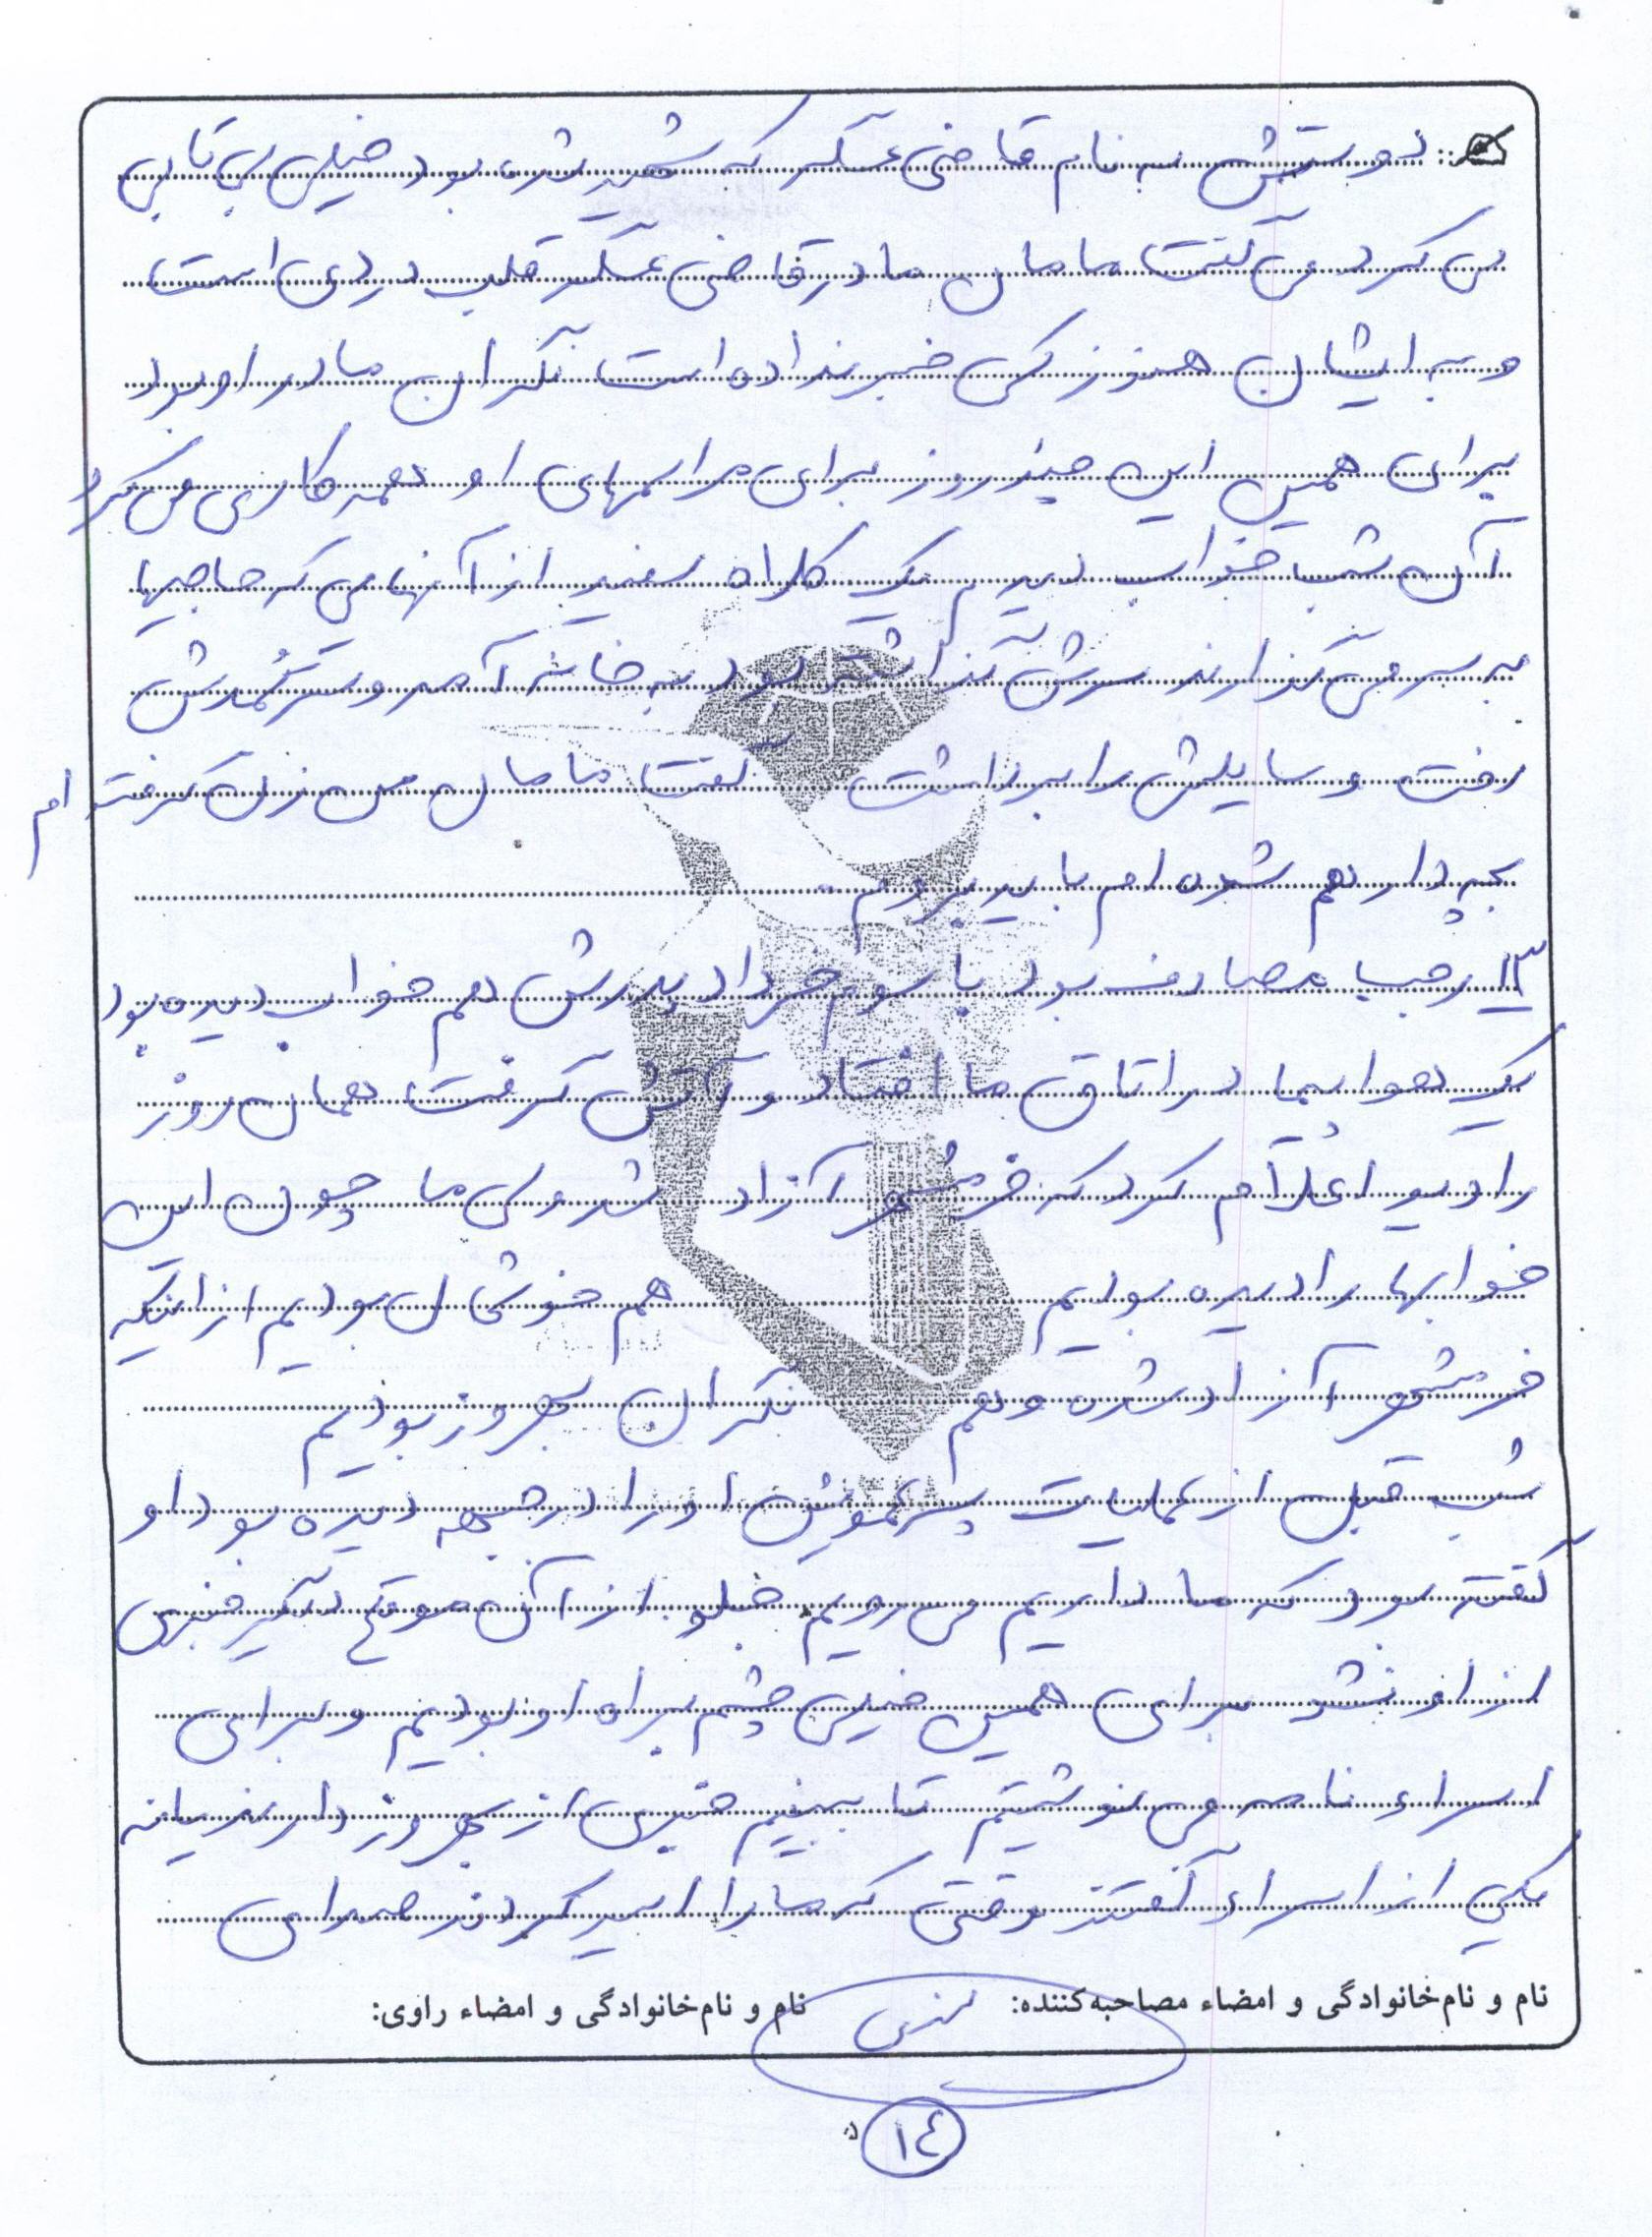 دوستش به نام قاضی عسگر که شهید شده بود خیلی بی تابی
می کرد می گفت مامان مادر قاضی عسگر قلب دردی است
و به ایشان هنوز کسی خبر نداده است نگران مادر او بود
برای همین این چند روز برای مراسمهای او همه کاری می کرد
آن شب خواب دیدم یک کلاه سفید از آنهایی که حاجیها
به سر می گذارند سرش گذاشته بود به خانه آمد و سر کمدش
رفت وسایلش را برداشت گفت مامان من زن گرفته ام
بچه دار هم شده ام باید بروم.
۱۳ رجب مصادف بود با سوم خرداد پدرش هم خواب دیده بود
یک هواپیما در اتاق ما افتاد و آتش گرفت همان روز
رادیو اعلام کرد که خرمشهر آزاد شد ولی ما چون این
خوابها را دیده بودیم هم خوشحال بودیم از اینکه
خرمشهر آزاد شده و هم نگران بهروز بودیم
شب قبل از عملیات پسرعمویش او را در جبهه دیده بود او
گفته بود که ما داریم می رویم جلو. از آن موقع دیگر خبری
از او نشد برای همین خیلی چشم براه او بودیم و برای
اسراء نامه می نوشتیم تا ببینیم خبری از بهروز دارند یا نه
یکی از اسراء گفتند وقتی که ما را اسیر کردند صدای
نام و نام‌خانوادگی و امضاء مصاحبه‌کننده: نام و نام‌خانوادگی و امضاء راوی:
۱٤